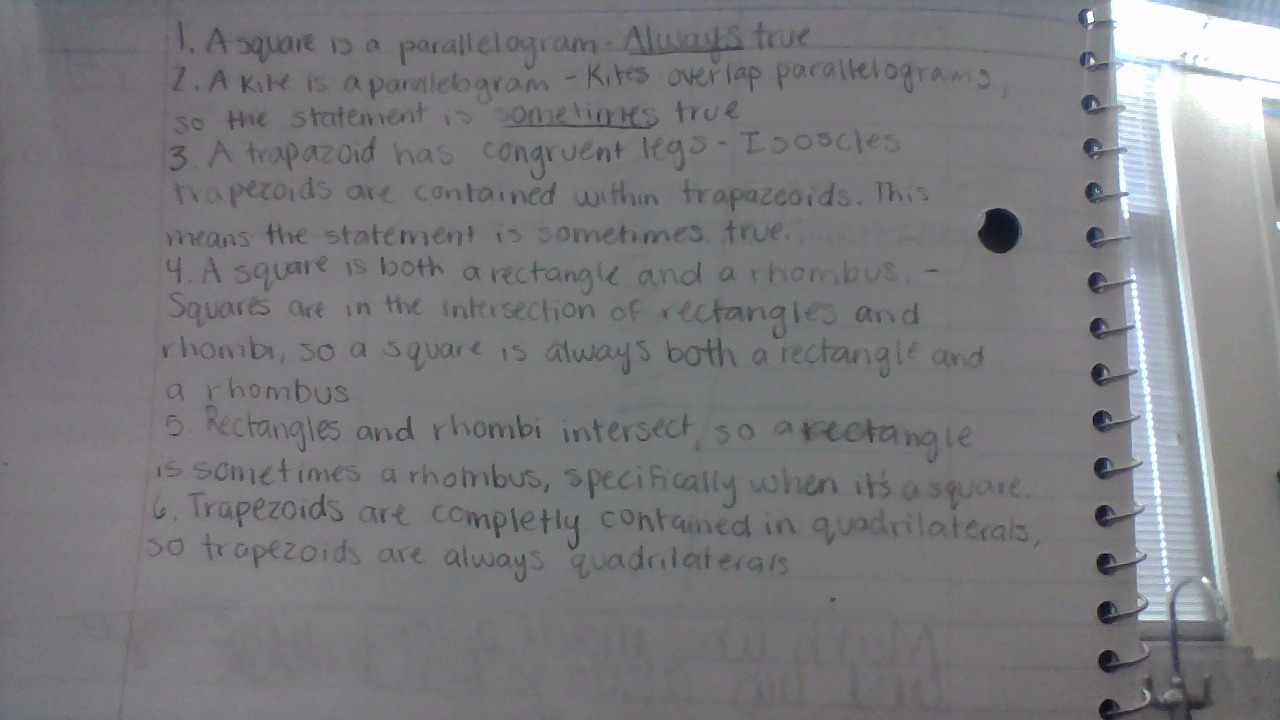 1. A square is a parallelogram - Always true
2. A Kite is a parallelogram - Kites overlap parallelograms,
so the statement is sometimes true
3. A trapazoid has congruent legs - Isoscles
trapezoids are contained within trapazeoids. This
means the statement is sometimes true.
4. A square is both a rectangle and a rhombus. -
Squares are in the intersection of rectangles and
rhombi, so a square is always both a rectangle and
a rhombus
5. Rectangles and rhombi intersect, so a rectangle
is sometimes a rhombus, specifically when it's a square.
6. Trapezoids are completly contained in quadrilaterals,
so trapezoids are always quadrilaterals